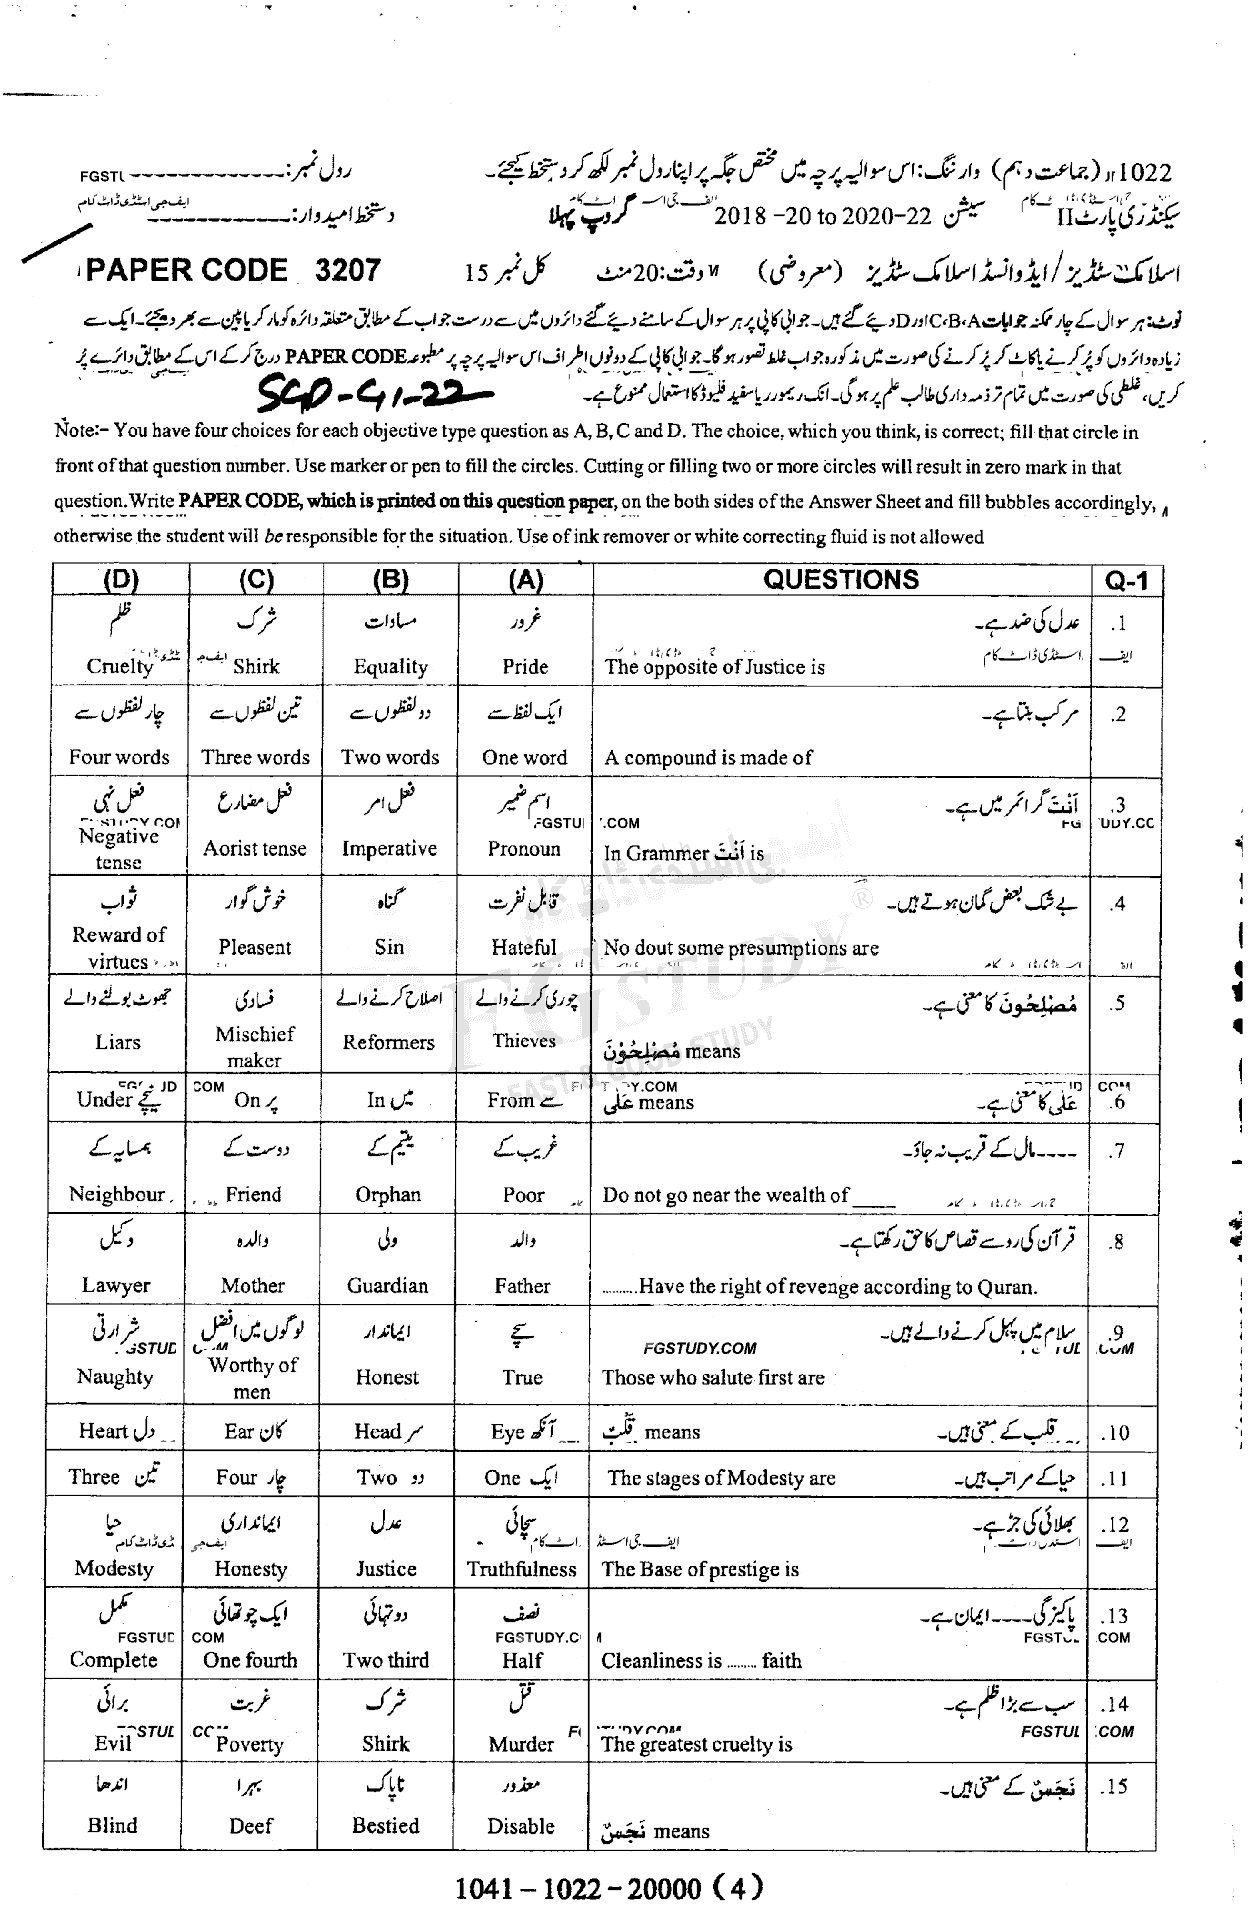 1022 (جماعت دہم) وارننگ: اس سوالیہ پرچہ میں مختص جگہ پر اپنا رول نمبر لکھ کر دستخط کیجئے۔ رول نمبر: --------------
سیکنڈری پارٹ II سیشن 2018-20 to 2020-22 گروپ پہلا دستخط امیدوار: --------------
اسلامک سٹڈیز / ایڈوانسڈ اسلامک سٹڈیز (معروضی) VI وقت: 20 منٹ کل نمبر 15 PAPER CODE 3207
نوٹ: ہر سوال کے چار ممکنہ جوابات A، B، C اور D دیئے گئے ہیں۔ جوابی کاپی پر ہر سوال کے سامنے دیئے گئے دائروں میں سے درست جواب کے مطابق متعلقہ دائرہ کو مارکر یا پین سے بھر دیجئے۔ ایک سے
زیادہ دائروں کو پُر کرنے یا کاٹ کر پُر کرنے کی صورت میں مذکورہ جواب غلط تصور ہو گا۔ جوابی کاپی کے دونوں اطراف اس سوالیہ پرچہ پر مطبوعہ PAPER CODE درج کر کے اس کے مطابق دائرے پُر
کریں، غلطی کی صورت میں تمام تر ذمہ داری طالب علم پر ہو گی۔ انک ریمور یا سفید فلیوڈ کا استعمال ممنوع ہے۔ SGD-G1-22
Note:- You have four choices for each objective type question as A, B, C and D. The choice, which you think, is correct; fill that circle in
front of that question number. Use marker or pen to fill the circles. Cutting or filling two or more circles will result in zero mark in that
question. Write PAPER CODE, which is printed on this question paper, on the both sides of the Answer Sheet and fill bubbles accordingly,
otherwise the student will be responsible for the situation. Use of ink remover or white correcting fluid is not allowed
(D) (C) (B) (A) QUESTIONS Q-1
ظلم شرک مساوات غرور عدل کی ضد ہے۔ .1
Cruelty Shirk Equality Pride The opposite of Justice is
چار لفظوں سے تین لفظوں سے دو لفظوں سے ایک لفظ سے مرکب بنتا ہے۔ .2
Four words Three words Two words One word A compound is made of
فعل نہی فعل مضارع فعل امر اسم ضمیر اَنْتَ گرائمر میں ہے۔ .3
Negative tense Aorist tense Imperative Pronoun In Grammer اَنْتَ is
ثواب خوش گوار گناہ قابل نفرت بے شک بعض گمان ہوتے ہیں۔ .4
Reward of virtues Pleasent Sin Hateful No dout some presumptions are
جھوٹ بولنے والے فسادی اصلاح کرنے والے چوری کرنے والے مُصْلِحُوْنَ کا معنی ہے۔ .5
Liars Mischief maker Reformers Thieves مُصْلِحُوْنَ means
Under نیچے On پر In میں From سے عَلٰی means عَلٰی کا معنی ہے۔ .6
ہمسایہ کے دوست کے یتیم کے غریب کے ---- مال کے قریب نہ جاؤ۔ .7
Neighbour Friend Orphan Poor Do not go near the wealth of ____
وکیل والدہ ولی والد قرآن کی رو سے قصاص کا حق رکھتا ہے۔ .8
Lawyer Mother Guardian Father .........Have the right of revenge according to Quran.
شرارتی لوگوں میں افضل ایماندار سچے سلام میں پہل کرنے والے ہیں۔ .9
FGSTUDY.COM
Naughty Worthy of men Honest True Those who salute first are
Heart دل Ear کان Head سر Eye آنکھ قَلْبٌ means قلب کے معنی ہیں۔ .10
Three تین Four چار Two دو One ایک The stages of Modesty are حیا کے مراتب ہیں۔ .11
حیا ایمانداری عدل سچائی بھلائی کی جڑ ہے۔ .12
Modesty Honesty Justice Truthfulness The Base of prestige is
مکمل ایک چوتھائی دو تہائی نصف پاکیزگی ---- ایمان ہے۔ .13
Complete One fourth Two third Half Cleanliness is ........ faith
برائی غربت شرک قتل سب سے بڑا ظلم ہے۔ .14
Evil Poverty Shirk Murder The greatest cruelty is
اندھا بہرا ناپاک معذور نَجَسٌ کے معنی ہیں۔ .15
Blind Deef Bestied Disable نَجَسٌ means
1041 – 1022 – 20000 (4)
FGSTUDY
FAST & GOOD STUDY